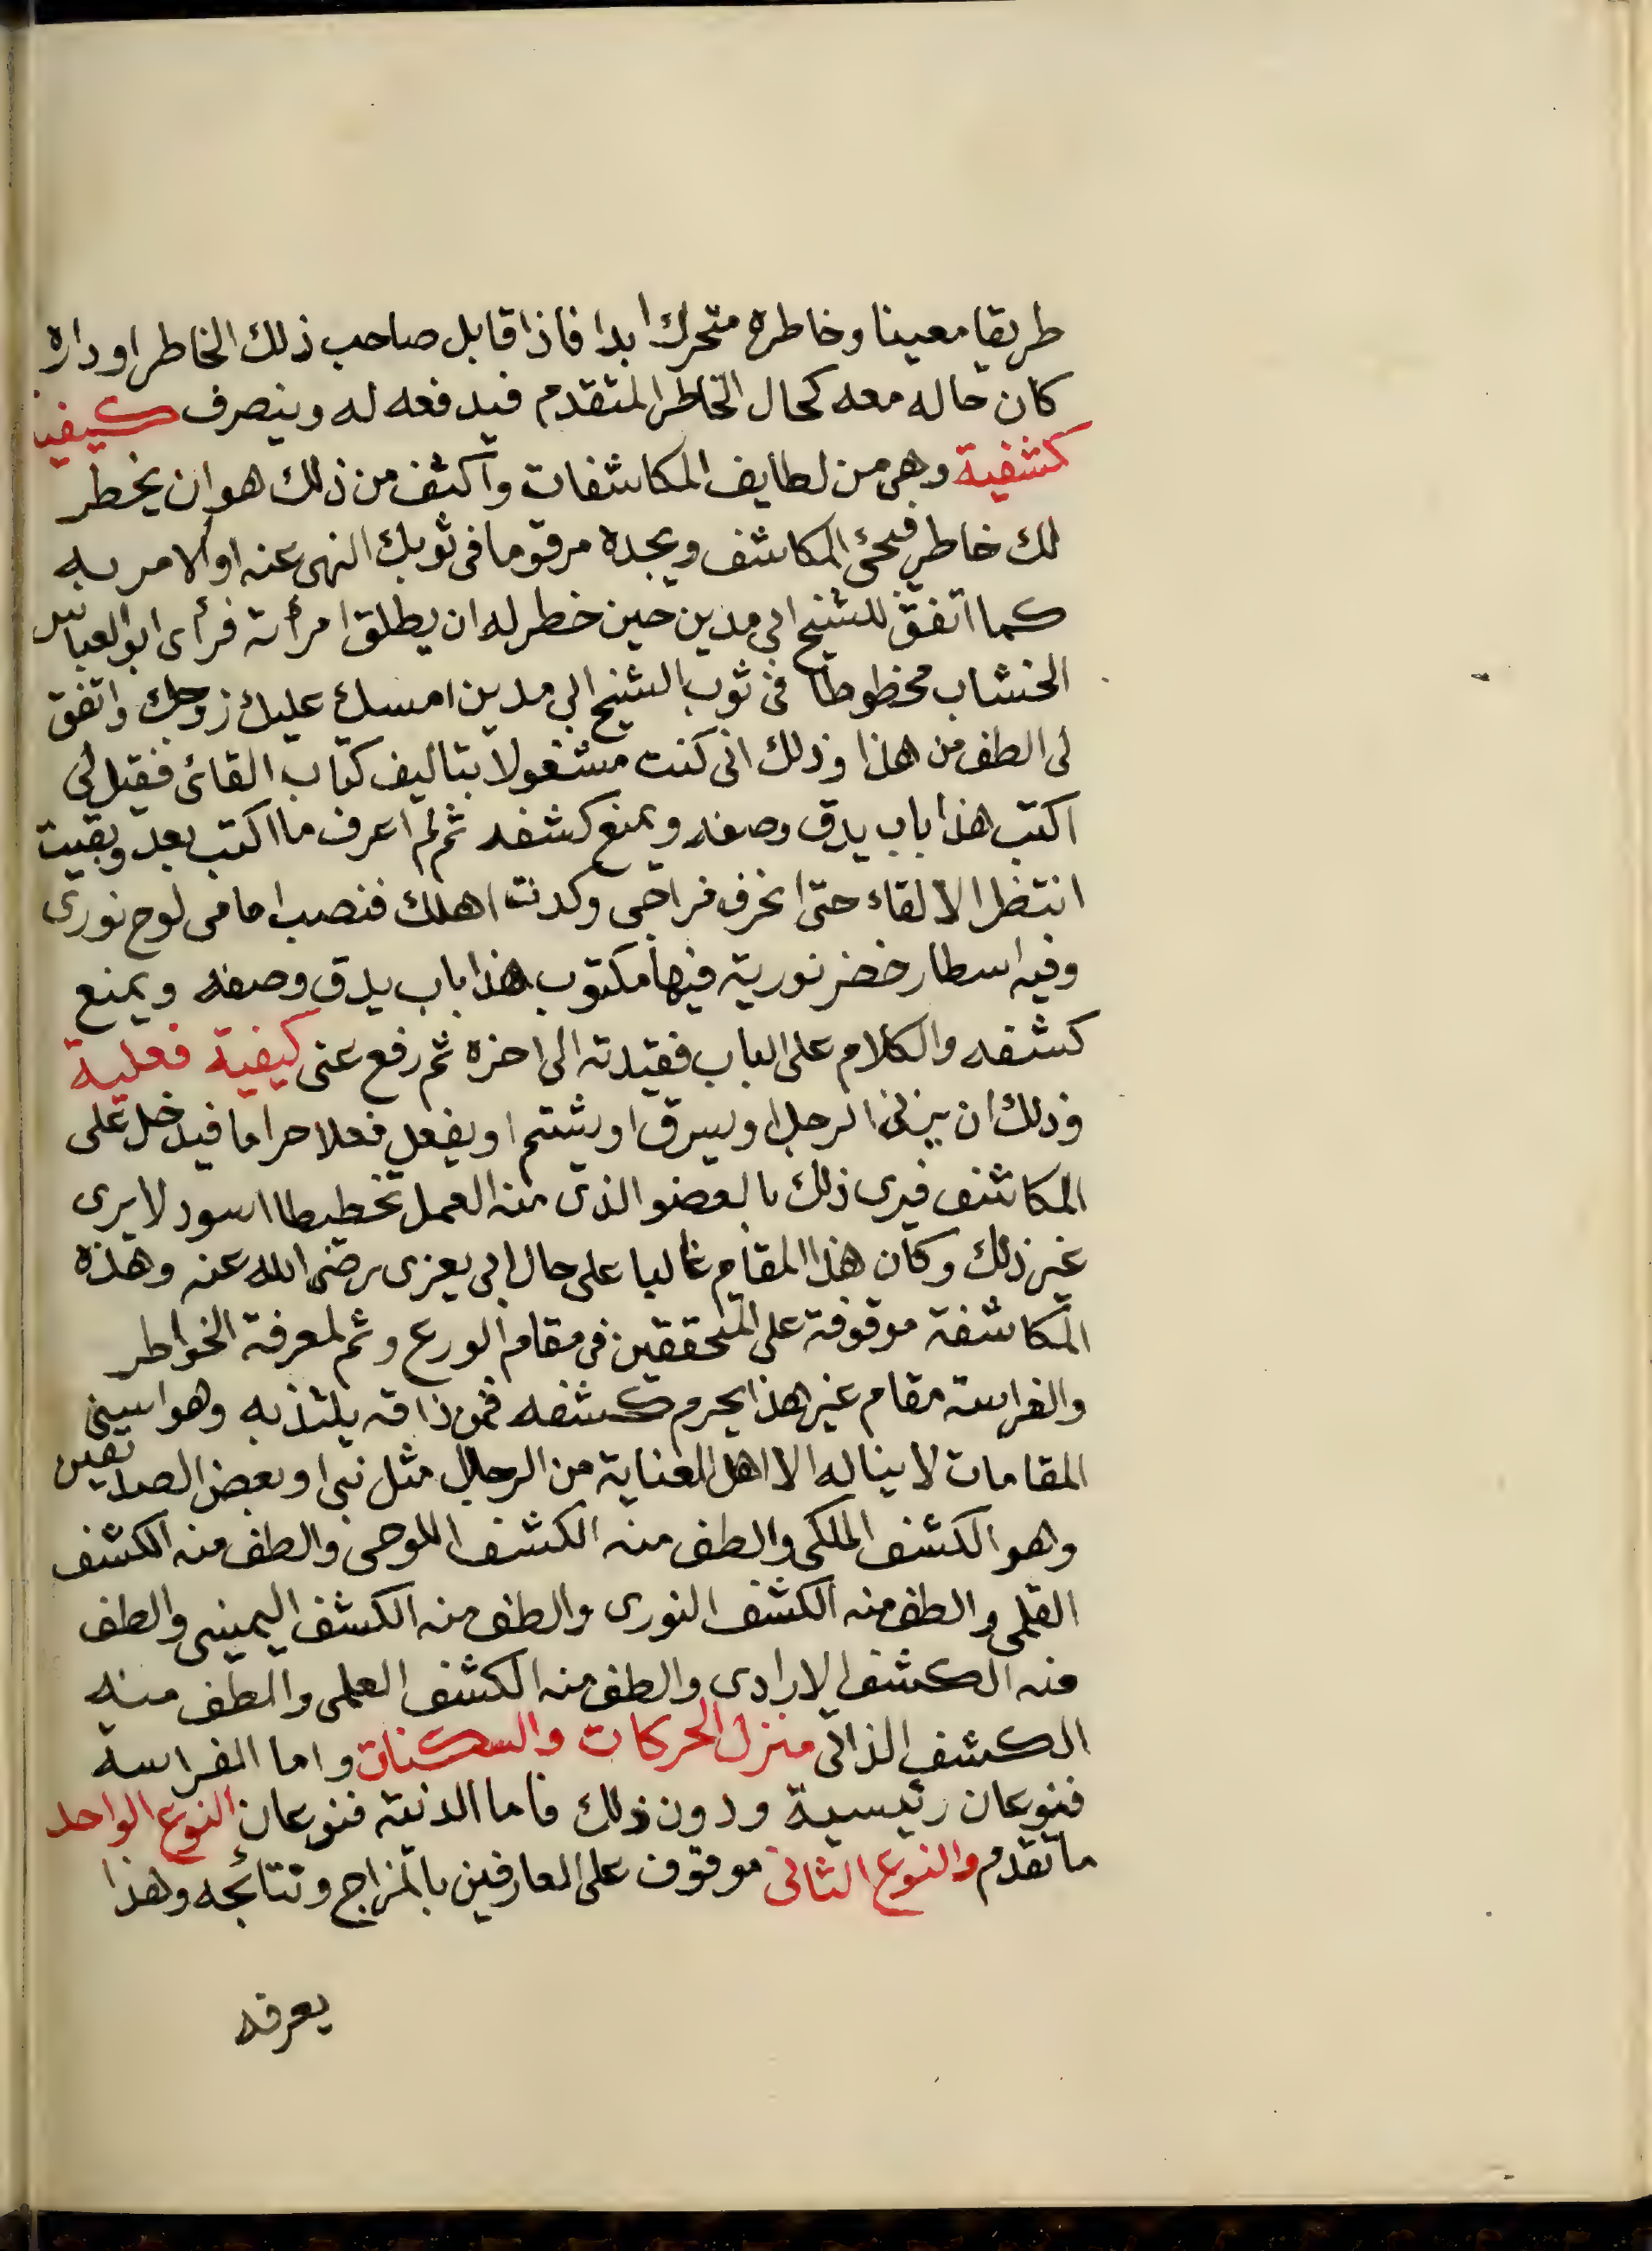 طريقا معينا وخاطره متحرك ابدا فاذا قابل صاحب ذلك الخاطر او داره
كان حاله معه كحال الخاطر المتقدم فيدفعه له وينصرف كيفية
كشفية وهي من لطايف المكاشفات وآكثف من ذلك هو ان يخطر
لك خاطر فيجئ المكاشف ويجده مرقوما في ثوبك النهى عنه او الامر به
كما اتفق للشيخ ابي مدين حين خطر له ان يطلق امرأته فرأى ابو العباس
الخشاب مخطوطا في ثوب الشيخ ابي مدين امسك عليك زوجك واتفق
لى الطف من هذا وذلك انى كنت مشغولا بتاليف كتاب القائى فقيل لى
اكتب هذا باب يدق وصفه ويمنع كشفه ثم لم اعرف ما اكتب بعد وبقيت
انتظر الالقاء حتى انحرف مزاجى وكدت اهلك فنصب امامى لوح نورى
وفيه اسطار خضر نورية فيها مكتوب هذا باب يدق وصفه ويمنع
كشفه والكلام على الباب فقيدته الى اخره ثم رفع عنى كيفية فعلية
وذلك ان يزنى الرجل او يسرق او يشتم او يفعل فعلا حراما فيدخل على
المكاشف فيرى ذلك بالعضو الذى منه العمل تخطيطا اسود لا يرى
غير ذلك وكان هذا المقام غالبا على حال ابى يعزى رضى الله عنه وهذه
المكاشفة موقوفة على المتحققين فى مقام الورع وثم لمعرفة الخواطر
والفراسة مقام غير هذا يحرم كشفه فمن ذاقه يلتذ به وهو اسنى
المقامات لا يناله الا اهل العناية من الرجال مثل نبى او بعض الصديقين
وهو الكشف الملكى والطف منه الكشف اللوحى والطف منه الكشف
القلمى والطف منه الكشف النورى والطف منه الكشف اليمينى والطف
منه الكشف الارادى والطف منه الكشف العلمى والطف منه
الكشف الذاتى منزل الحركات والسكنات واما الفراسة
فنوعان رئيسية ودون ذلك فاما الدنية فنوعان النوع الواحد
ما تقدم والنوع الثانى موقوف على العارفين بالمزاج ونتائجه وهذا
يعرفه